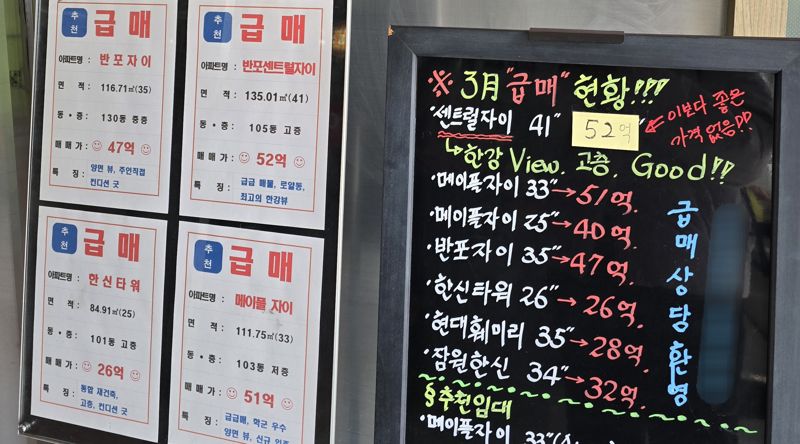 추천 급매
아파트명 : 반포자이
면 적 : 116.71㎡(35)
동 • 층 : 130동 중층
매 매 가 : 47억
특 징 : 양면 뷰, 주인직접
컨디션 굿
추천 급매
아파트명 : 반포센트럴자이
면 적 : 135.01㎡(41)
동 • 층 : 105동 고층
매 매 가 : 52억
특 징 : 급급 매물, 로얄동,
최고의 한강뷰
추천 급매
아파트명 : 한신타워
면 적 : 84.91㎡(25)
동 • 층 : 101동 고층
매매가 : 26억
특 징 : 통합 재건축,
고층, 컨디션 굿
추천 급매
아파트명 : 메이플 자이
면 적 : 111.75㎡(33)
동 • 층 : 103동 저층
매매가 : 51억
특 징 : 급급매, 학군 우수
양면 뷰, 신규
※ 3月 "급매" 현황!!!
·센트럴자이 41" 52억 ← 이보다 좋은
가격 없음!!
↳한강 View. 고층. Good!!
·메이플자이 33"→51억.
·메이플자이 25"→40억.
·반포자이 35"→47억.
·한신타워 26"→26억.
·현대훼미리 35"→28억.
·잠원한신 34"→32억.
급매상담환영
§추천임대
·메이플자이 33"